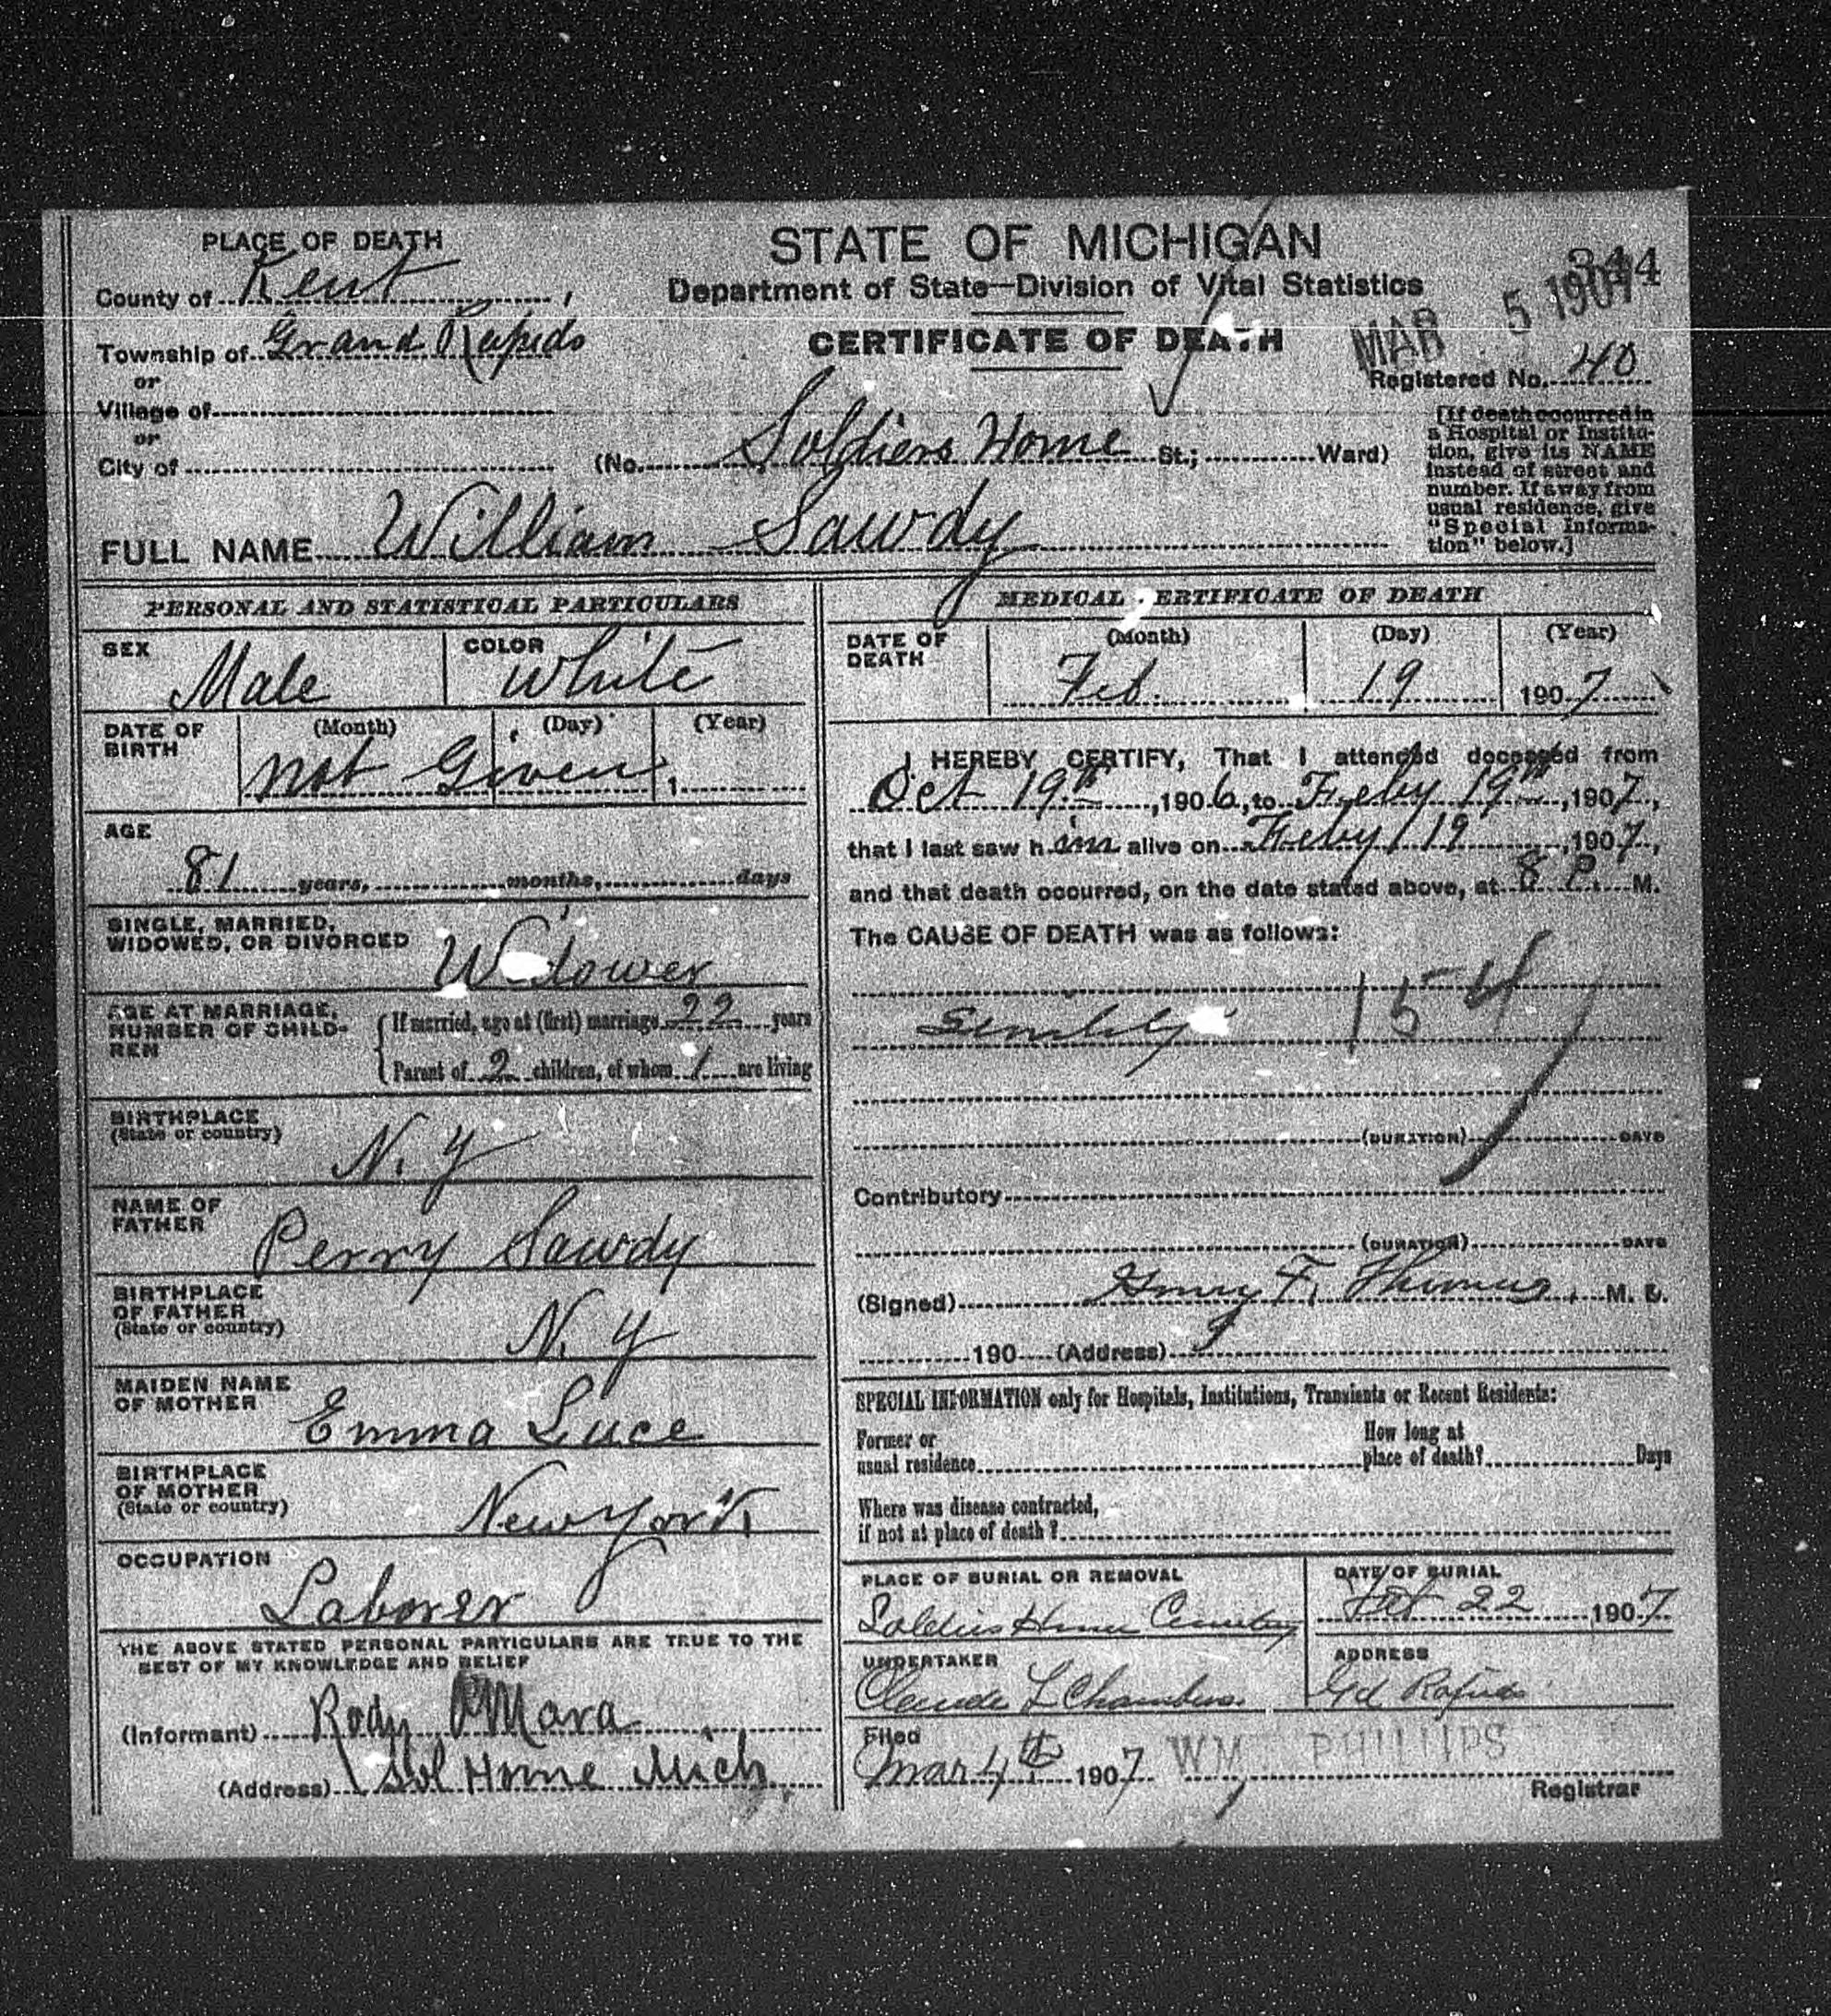 PLACE OF DEATH
County of Kent,
Township of Grand Rapids
or
Village of
or
City of
STATE OF MICHIGAN
Department of State—Division of Vital Statistics
CERTIFICATE OF DEATH
344
MAR 5 1907
Registered No. 40
(No. Soldiers Home St.; Ward)
[If death occurred in
a Hospital or Institu-
tion, give its NAME
instead of street and
number. If away from
usual residence, give
"Special Informa-
tion" below.]
FULL NAME William Sawdy
PERSONAL AND STATISTICAL PARTICULARS
SEX Male
COLOR White
DATE OF BIRTH (Month) (Day) (Year)
not Given
AGE
81 years, months, days
SINGLE, MARRIED,
WIDOWED, OR DIVORCED Widower
AGE AT MARRIAGE,
NUMBER OF CHILD-
REN
If married, age at (first) marriage 22 years
Parent of 2 children, of whom 1 are living
BIRTHPLACE
(State or country) N. Y
NAME OF
FATHER Perry Sawdy
BIRTHPLACE
OF FATHER
(State or country) N. Y
MAIDEN NAME
OF MOTHER Emma Luce
BIRTHPLACE
OF MOTHER
(State or country) New York
OCCUPATION
Laborer
THE ABOVE STATED PERSONAL PARTICULARS ARE TRUE TO THE
BEST OF MY KNOWLEDGE AND BELIEF
(Informant) Rody O'Mara
(Address) Sol Home Mich
MEDICAL CERTIFICATE OF DEATH
DATE OF DEATH (Month) (Day) (Year)
Feb. 19 1907
I HEREBY CERTIFY, That I attended deceased from
Oct 19th, 1906, to Feby 19th, 1907,
that I last saw him alive on Feby 19, 1907,
and that death occurred, on the date stated above, at 8 P. M.
The CAUSE OF DEATH was as follows:
Senility 154
(DURATION) DAYS
Contributory
(DURATION) DAYS
(Signed) Henry F. Thomas, M. D.
190 (Address)
SPECIAL INFORMATION only for Hospitals, Institutions, Transients or Recent Residents:
Former or
usual residence
How long at
place of death? Days
Where was disease contracted,
if not at place of death?
PLACE OF BURIAL OR REMOVAL
Soldiers Home Cemetery
DATE OF BURIAL
Feb 22 1907
UNDERTAKER
Claude L Chambers.
ADDRESS
Gd Rapids
Filed
Mar 4th 1907 WM PHILLIPS
Registrar